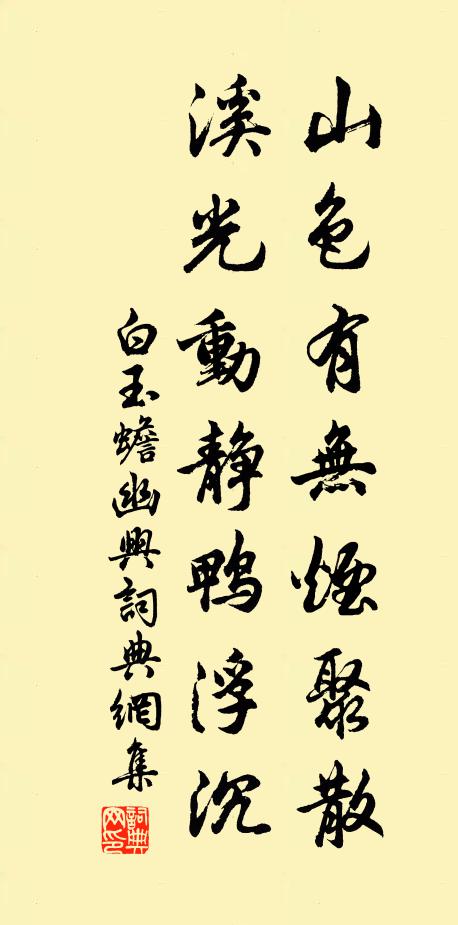 山色有無煙聚散
溪光動静鴨浮沉
白玉蟾幽興詞典網集
詞典網印